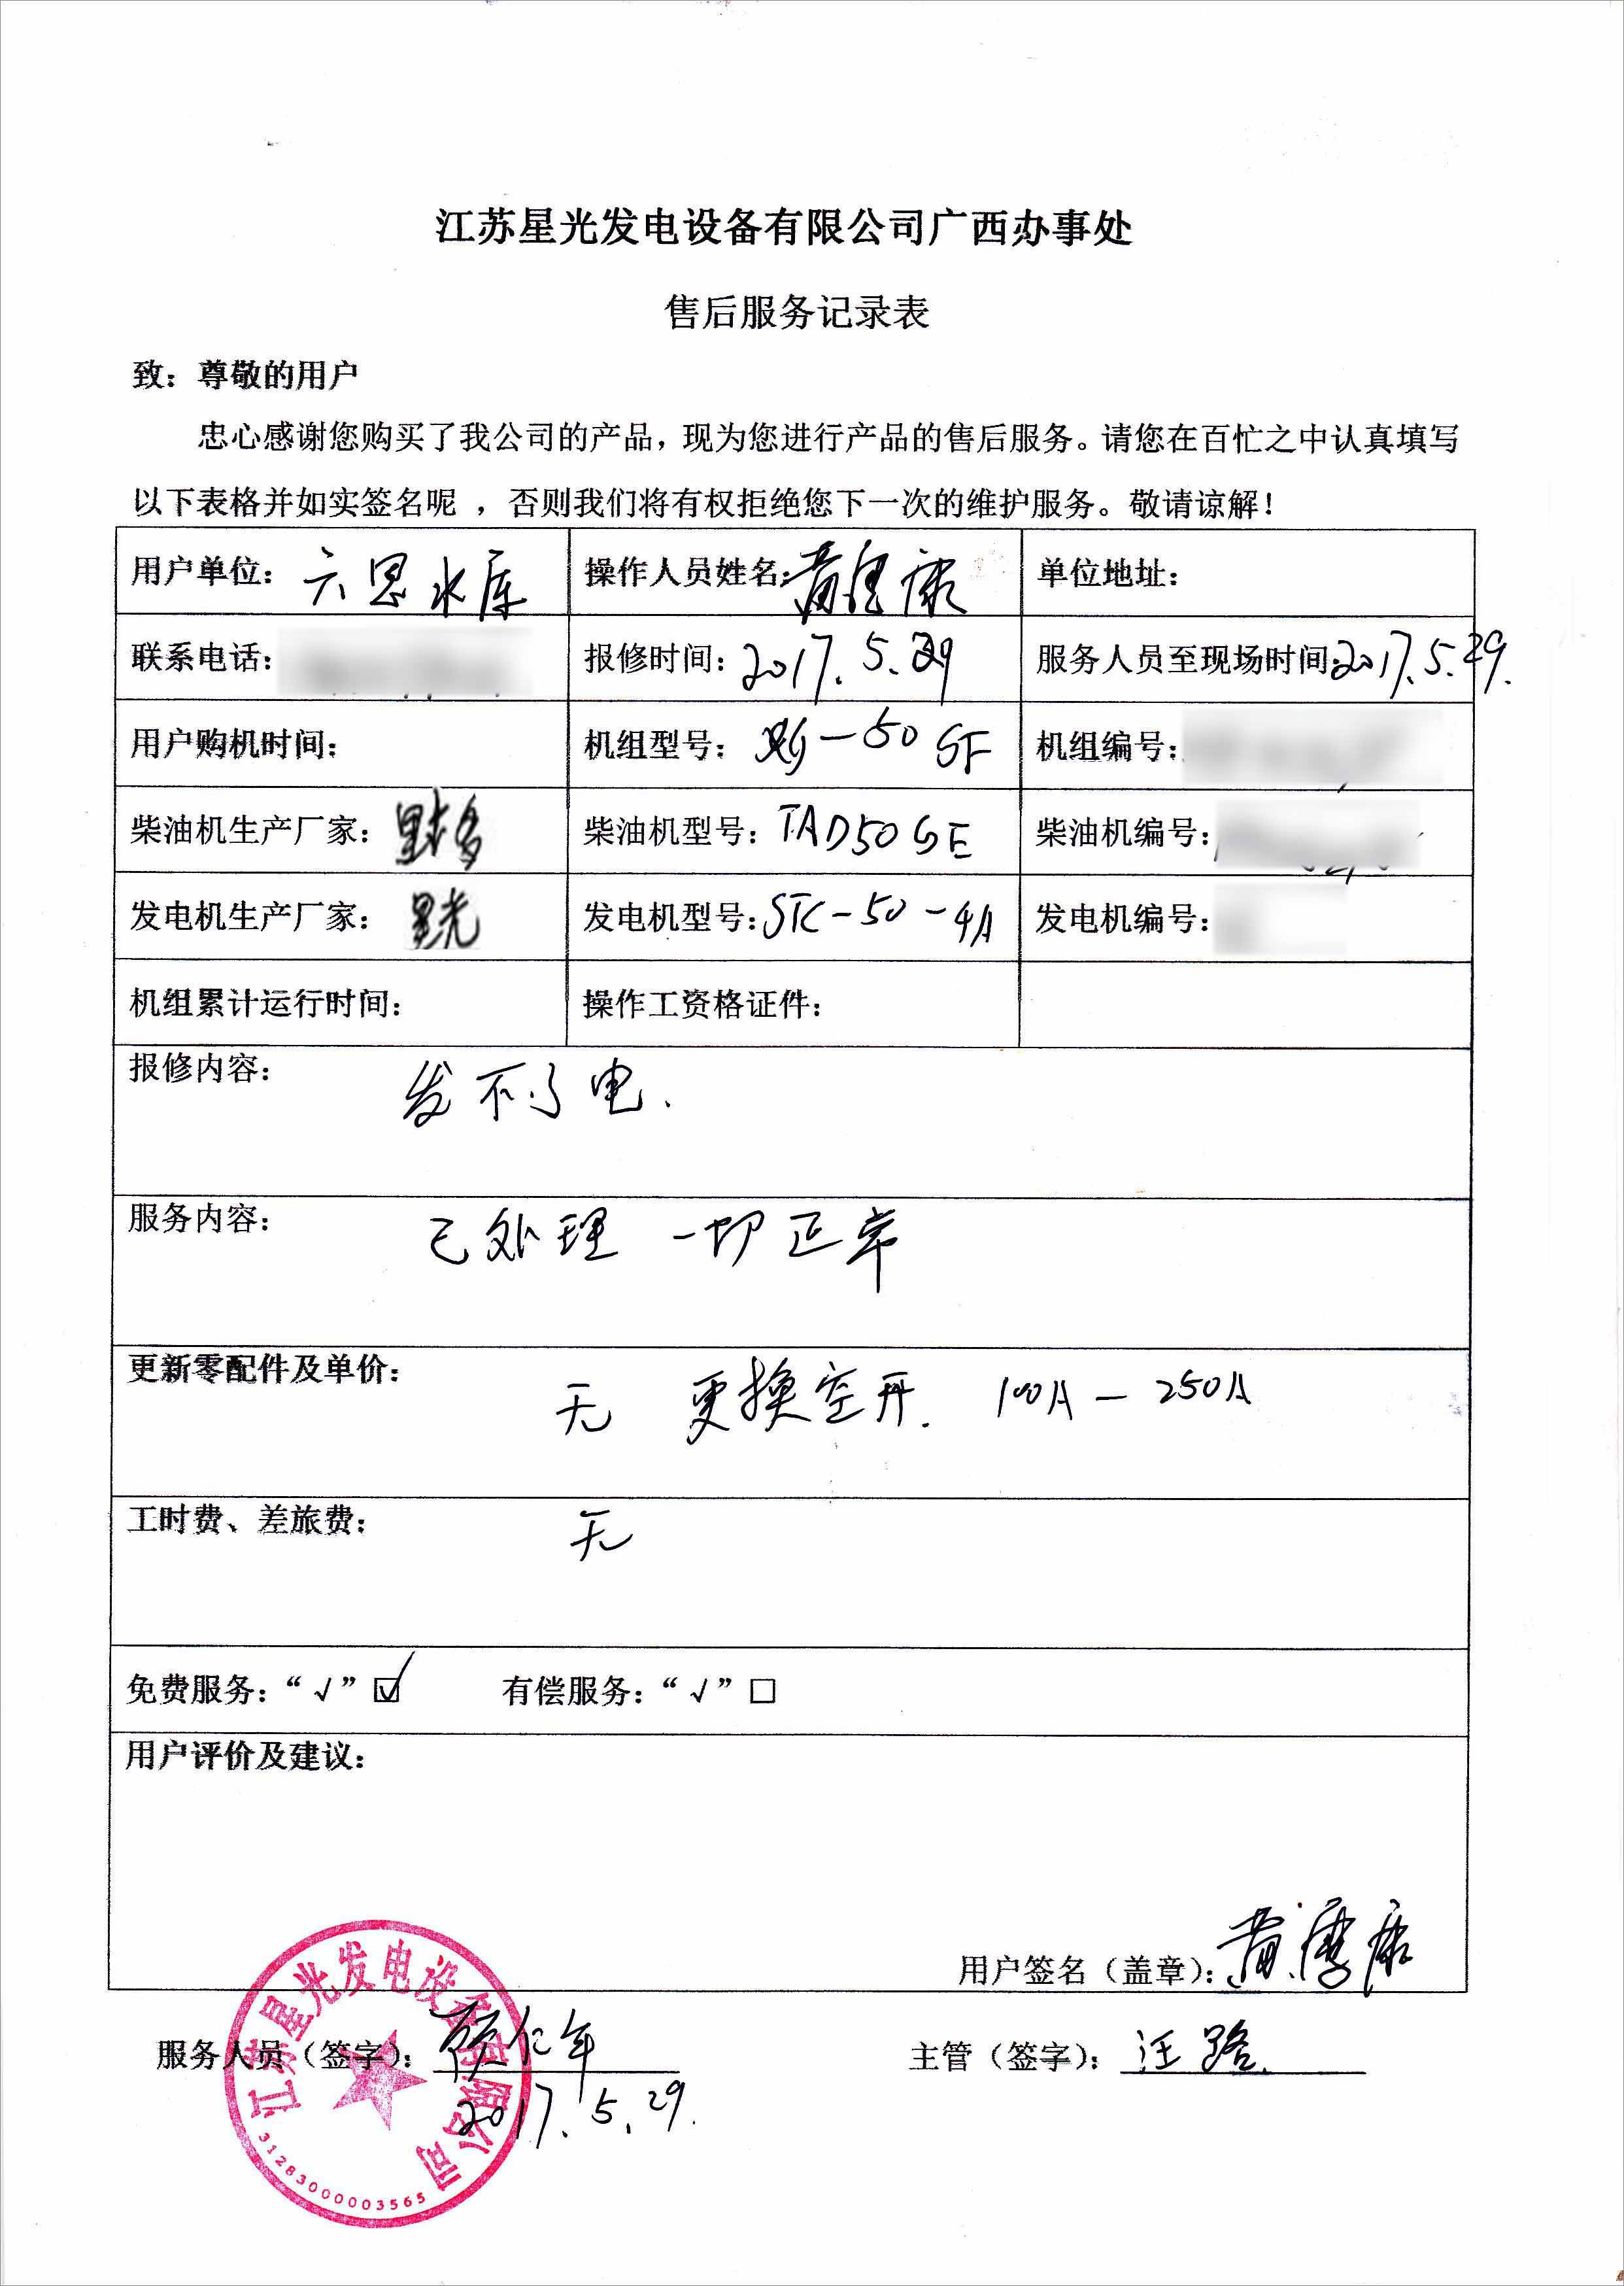 江苏星光发电设备有限公司广西办事处
售后服务记录表
致：尊敬的用户
忠心感谢您购买了我公司的产品，现为您进行产品的售后服务。请您在百忙之中认真填写
以下表格并如实签名呢 ，否则我们将有权拒绝您下一次的维护服务。敬请谅解！
用户单位：六恩水库 操作人员姓名：黄 康 单位地址：
联系电话： 报修时间：2017.5.29 服务人员至现场时间：2017.5.29.
用户购机时间： 机组型号：-50GF 机组编号：
柴油机生产厂家： 柴油机型号：TAD50GE 柴油机编号：
发电机生产厂家：星光 发电机型号：STC-50-4A 发电机编号：
机组累计运行时间： 操作工资格证件：
报修内容： 发不了电.
服务内容： 已处理 一切正常
更新零配件及单价： 无 更换空开. 100A-250A
工时费、差旅费： 无
免费服务：“√”☑ 有偿服务：“√”□
用户评价及建议：
用户签名（盖章）：黄 康
服务人员（签字）：仁年 主管（签字）：汪路
2017.5.29.
江苏星光发电设备有限公司
3128300003565